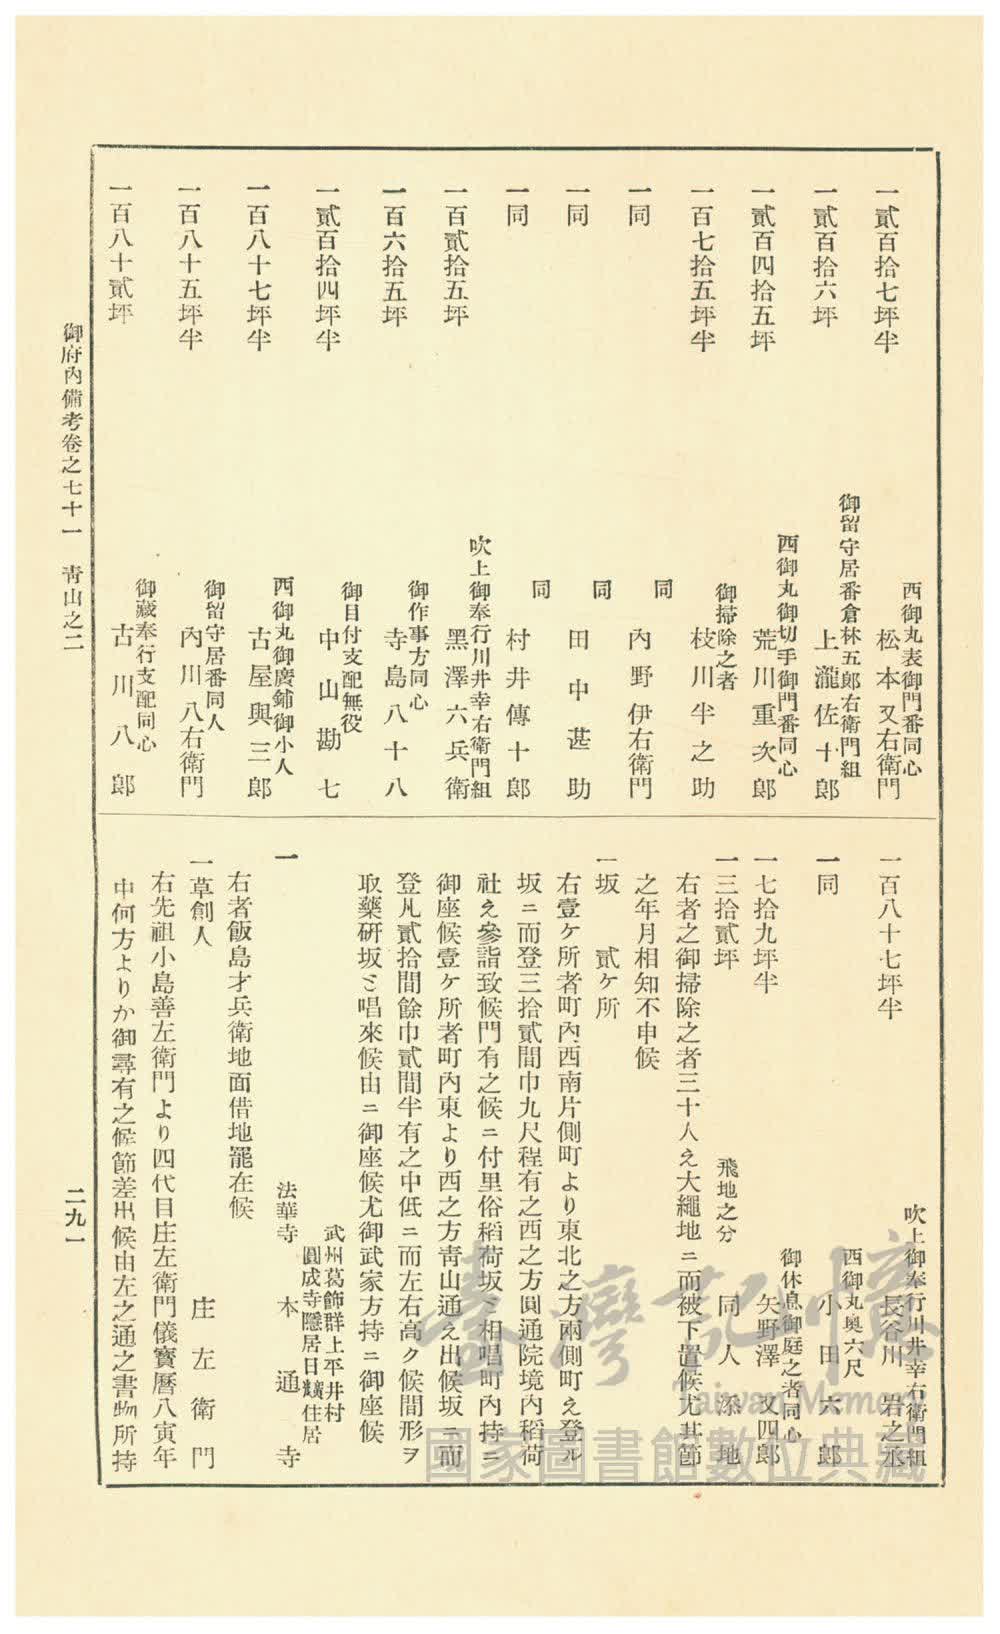 一貳百拾七坪半
西御丸表御門番同心
松本又右衛門
一貳百拾六坪
御留守居番倉林五郎右衛門組
上瀧佐十郎
一貳百四拾五坪
西御丸御切手御門番同心
荒川重次郎
一百七拾五坪半
御掃除之者
枝川半之助
一同
同
內野伊右衛門
一同
同
田中甚助
一同
同
村井傳十郎
一百貳拾五坪
吹上御奉行川井幸右衛門組
黑澤六兵衛
一百六拾五坪
御作事方同心
寺島八十八
一貳百拾四坪半
御目付支配無役
中山勘七
一百八十七坪半
西御丸御慶鋪御小人
古屋與三郎
一百八十五坪半
御留守居番同人
內川八右衛門
一百八十貳坪
御藏奉行支配同心
古川八郎
一百八十七坪半
吹上御奉行川井幸右衛門組
長谷川岩之丞
一同
西御丸奧六尺
小田六郎
一七拾九坪半
御休息御庭之者同心
矢野澤又四郎
一三拾貳坪
飛地之分
同人添地
右者之御掃除之者三十人え大繩地ニ而被下置候尤其節
之年月相知不申候
一坂 貳ケ所
右壹ケ所者町內西南片側町より東北之方兩側町え登ル
坂ニ而登三拾貳間巾九尺程有之西之方圓通院境內稻荷
社え參詣致候門有之候ニ付里俗稻荷坂ミ相唱町內持ニ
御座候壹ケ所者町內東より西之方靑山通え出候坂ニ而
登凡貳拾間餘巾貳間半有之中低ニ而左右高ク候間形ヲ
取藥硏坂ミ唱來候由ニ御座候尤御武家方持ニ御座候
一
武州葛飾群上平井村
圓成寺隱居日住居
法華寺 本通寺
右者飯島才兵衛地面借地罷在候
一草創人
庄左衛門
右先祖小島善左衛門より四代目庄左衛門儀寶曆八寅年
中何方よりか御尋有之候節差出候由左之通之書物所持
御府內備考卷之七十一 靑山之二
二九一
臺灣記憶
Taiwan Memory
國家圖書館數位典藏